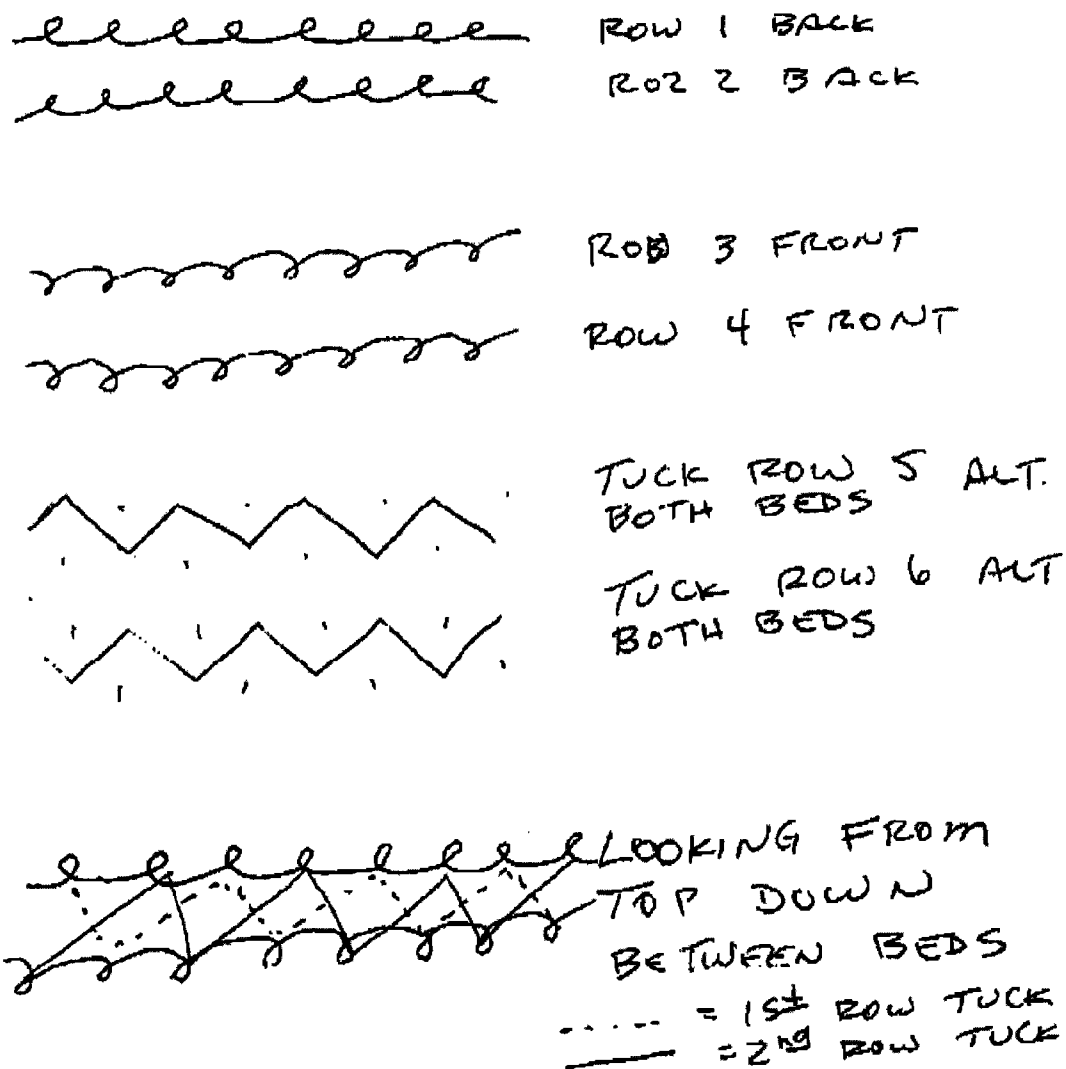 ROW 1 BACK
ROZ 2 BACK
ROW 3 FRONT
ROW 4 FRONT
TUCK ROW 5 ALT.
BOTH BEDS
TUCK ROW 6 ALT
BOTH BEDS
LOOKING FROM
TOP DOWN
BETWEEN BEDS
= 1st ROW TUCK
= 2nd ROW TUCK